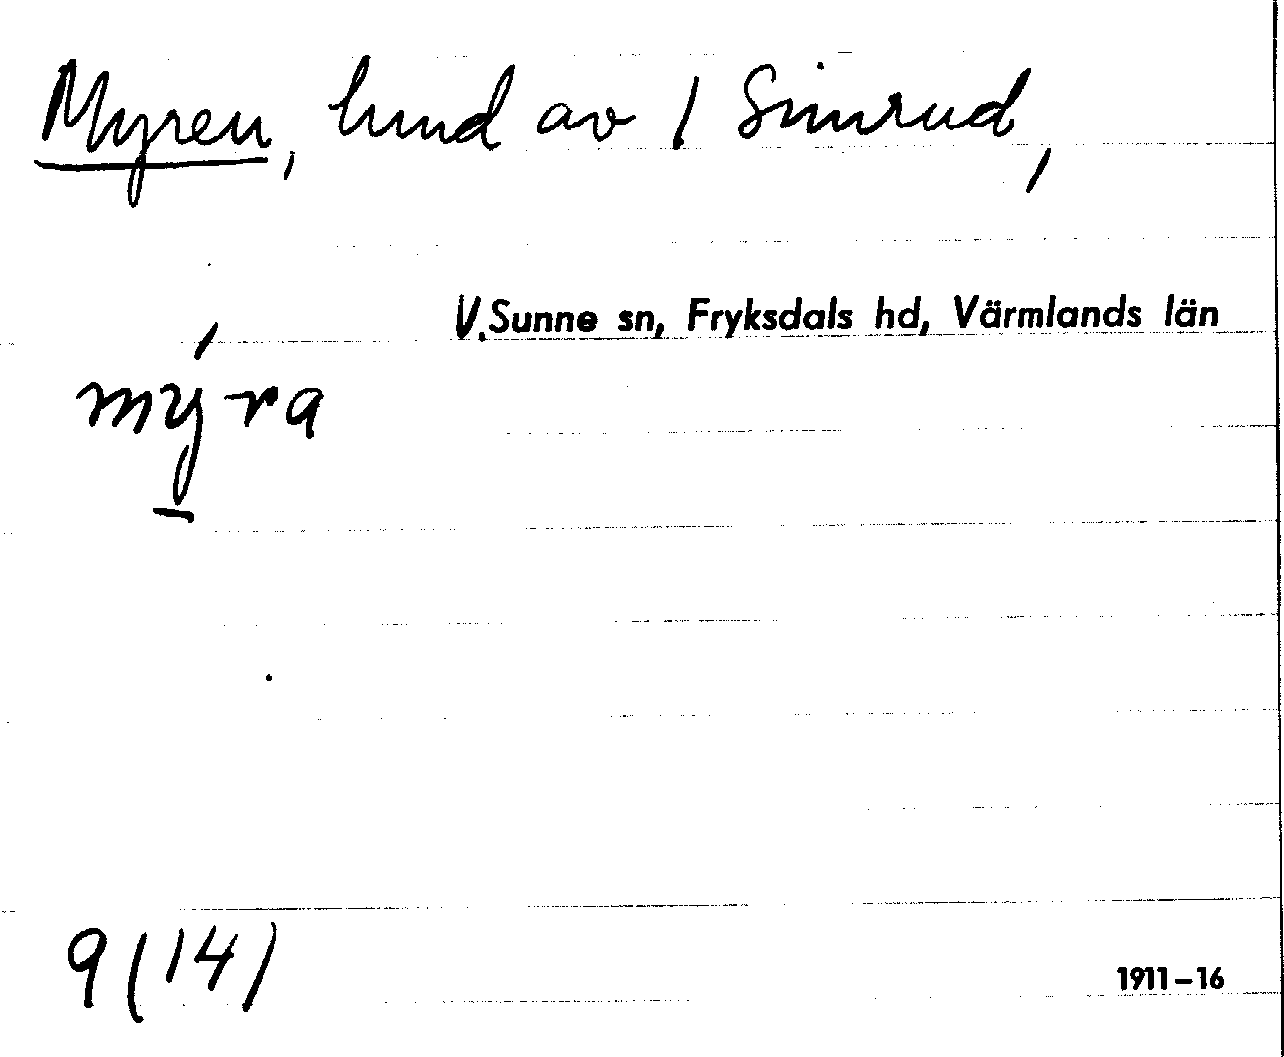 Myren, lund av 1 Simrud,
V. Sunne sn, Fryksdals hd, Värmlands län
mýra
9 (14)
1911–16